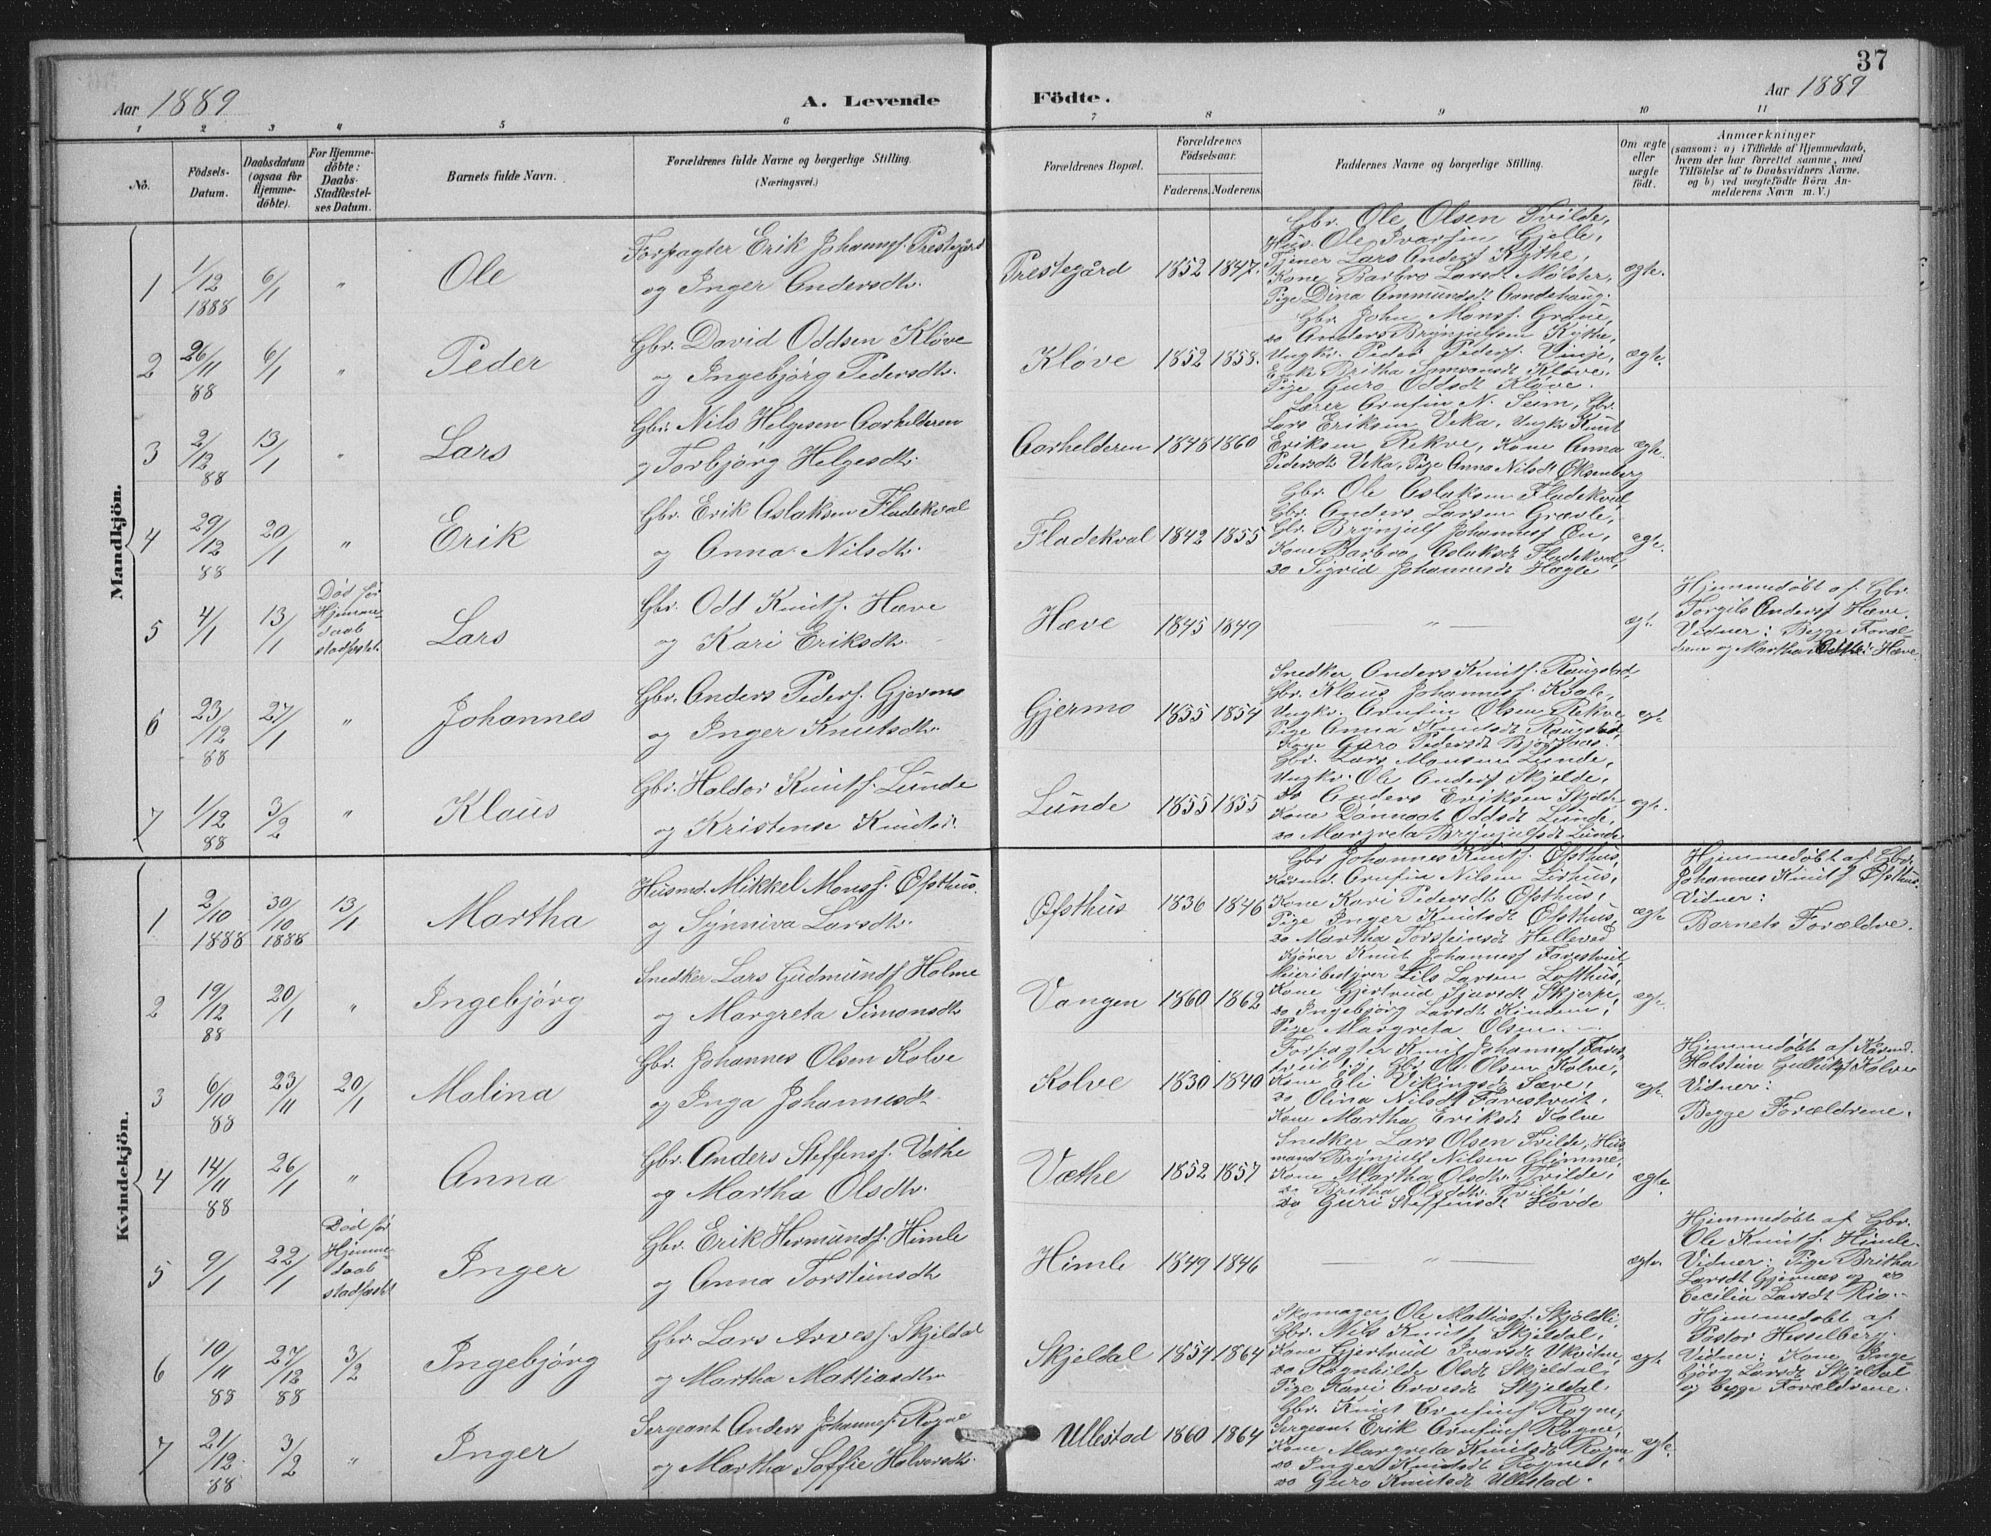 37
Aar 1889
A. Levende
Födte.
Aar 1889
1 2 3 4 5 6 7 8 9 10 11
No.
Födsels-Datum.
Daabsdatum (ogsaa for Hjemmedöbte).
For Hjemmedöbte: Daabs-Stadfæstelses Datum.
Barnets fulde Navn.
Forældrenes fulde Navne og borgerlige Stilling.
(Næringsvei.)
Forældrenes Bopæl.
Forældrenes Födselsaar.
Faderens. Moderens.
Faddernes Navne og borgerlige Stilling.
Om ægte eller uægte födt.
Anmærkninger
(saasom: a) i Tilfælde af Hjemmedaab, hvem der har forrettet samme, med Tilföielse af to Daabsvidners Navne, og b) ved uægtefödte Börn Anmelderens Navn m. V.)
Mandkjön.
1 1/12 1888 6/1 " Ole
Forpagter Erik Johannesf. Prestegård
og Inger Andersdtr.
Prestegård 1852 1847.
Gbr. Ole Olsen Tvilde,
Hus. Ole Ivarsen Gjelle,
Tjener Lars Andersf. Kythe,
Kone Barbro Larsdt. Mølster,
Pige Dina Ammundsdt.
ægte.
2 26/11 88 6/1 " Peder
Gbr. David Oddsen Kløve
og Ingebjørg Pedersdtr.
Kløve 1852 1858.
Gbr. John Monsf. Grøue,
do Anders Brynjulfsen Kythe,
Ungkr. Peder Pedersf. Vinje,
Enke Britha Simsonsdt. Kløve,
Pige Guro Oddsdt. Kløve.
ægte.
3 2/12 88 13/1 " Lars
Gbr. Nils Helgesen Aarhelderen
og Torbjørg Helgesdtr.
Aarhelderen 1848 1860
Lærer Arnfin N. Seim, Gbr.
Lars Eriksen Veka, Ungkr. Knut
Eriksen Rekve, Kone Anna
Pedersdt. Veka, Pige Anna Nilsdt. Øksenberg
ægte.
4 29/12 88 20/1 " Erik
Gbr. Erik Aslaksen Fladekval
og Anna Nilsdtr.
Fladekval 1842 1855
Gbr. Ole Aslaksen Fladekval,
Gbr. Anders Larsen Grevle,
Gbr. Brynjulf Johannesf. Øn,
Kone Barbro Aslaksdt. Fladekval,
do Sigrid Johannesdt. Hægle
ægte.
5 4/1 13/1 Død før Hjemmedaab stadfæstet. Lars
Gbr. Odd Knutsf. Hæve
og Kari Eriksdtr.
Hæve 1845 1849
"
ægt.
Hjemmedøbt af Gbr.
Torgils Andersf. Hæve.
Vidner: Begge Foræl-
drene og Martha Hæve.
6 23/12 88 27/1 " Johannes
Gbr. Anders Pedersf. Gjermo
og Inger Knutsdtr.
Gjermo 1855 1854
Snedker Anders Knutsf. Raugstad,
Gbr. Klaus Johannesf. Kvale,
Ungkr. Arnfin Olsen Rekve,
Pige Anna Knutsdt. Raugstad,
Kone Guro Pedersdt. Bjørgaas.
ægt.
7 1/12 88 3/2 " Klaus
Gbr. Haldor Knutsf. Lunde
og Kristense Knutsdt.
Lunde 1855 1855
Gbr. Lars Monsen Lunde,
Ungkr. Ole Andersf. Skjelde,
do Anders Eriksen Skjelde
Kone Oddsdt. Lunde,
do Margreta Brynjulfsdt. Lunde
ægt.
Kvindekjön.
1 2/10 1888 30/10 1888 13/1 Martha
Husmd. Mikkel Monsf. Øfsthus.
og Synniva Larsdtr.
Øfsthus 1836 1846
Gbr. Johannes Knutsf. Øfsthus,
Kårmd. Arnfin Nilsen Lirhus,
Kone Kari Pedersdt. Øfsthus,
Pige Inger Knutsdt. Øfsthus,
do Martha Torsteinsdt. Helleved
ægt.
Hjemmedøbt af Gbr.
Johannes Knutsf. Øfsthus.
Vidner:
Barnets Forældre.
2 19/12 88 20/1 " Ingebjørg
Snedker Lars Gudmundsf. Holme
og Margreta Simonsdtr.
Vangen 1860 1862
Kjører Knut Johannesf. Farestveit,
Meieribestyrer Nils Larsen Lofthus,
Kone Gjertrud Sjursdt. Skjerpe,
do Ingebjørg Larsdt. Kindem,
Pige Margreta Olsen.
ægt.
3 6/10 88 23/11 20/1 Malina
Gbr. Johannes Olsen Kolve
og Inga Johannesdt.
Kolve 1830 1840
Forpagter Knut Johannesf. Fares-
tveit, Gbr. Od. Olsen Kolve,
Kone Eli Vikingsdt. Sæve,
do Olina Nilsdt. Farestveit,
Kone Martha Eriksdt. Kolve
ægt.
Hjemmedøbt af Kårmd.
Holstein Gulliksf. Kolve
Vidner:
Begge Forældrene.
4 14/11 88 26/1 " Anna
Gbr. Anders Steffensf. Væthe
og Martha Olsdtr.
Væthe 1852 1857
Snedker Lars Olsen Tvilde, Hus-
mand Brynjulf Nilsen Glimme,
Kone Martha Olsdtr. Tvilde,
do Britha Olsdtr. Tvilde,
do Guri Steffensdt. Hovda
ægte.
5 9/1 22/1 Død før Hjemmedaab stadfæstet Inger
Gbr. Erik Hermundsf. Himle
og Anna Torsteinsdtr.
Himle 1849 1846
"
ægte.
Hjemmedøbt af Gbr.
Ole Knutsf. Himle.
Vidner: Pige Britha
Larsdt. Gjernæs og do
Cecilia Larsdt. Rio.
6 10/11 88 27/12 88 3/2 Ingebjørg
Gbr. Lars Arvesf. Skjeldal
og Martha Mattiasdtr.
Skjeldal 1854 1864
Skomager Ole Mattiasf. Skjoldli,
Gbr. Nils Knutsf. Skjeldal,
Kone Gjertrud Ivarsdt. Ukvitne,
do Ragnhilde Olsdt. Skjeldal,
Pige Kari Arvesdt. Skjeldal.
ægt.
Hjemmedøbt af
Pastor Hesselberg.
Vidner: Kone Inge-
bjørg Larsdt. Skjeldal
og begge Forældrene.
7 21/12 88 3/2 " Inger
Sergeant Anders Johannesf. Rogne
og Martha Soffie Halvorsdtr.
Ullestad 1860 1864
Gbr. Knut Arnfinsf. Rogne,
Sergeant Erik Arnfinsf. Rogne,
Kone Margreta Knutsdt. Rogne
do Inger Knutsdt. Rogne,
do Guro Knutsdt. Ullestad.
ægte.